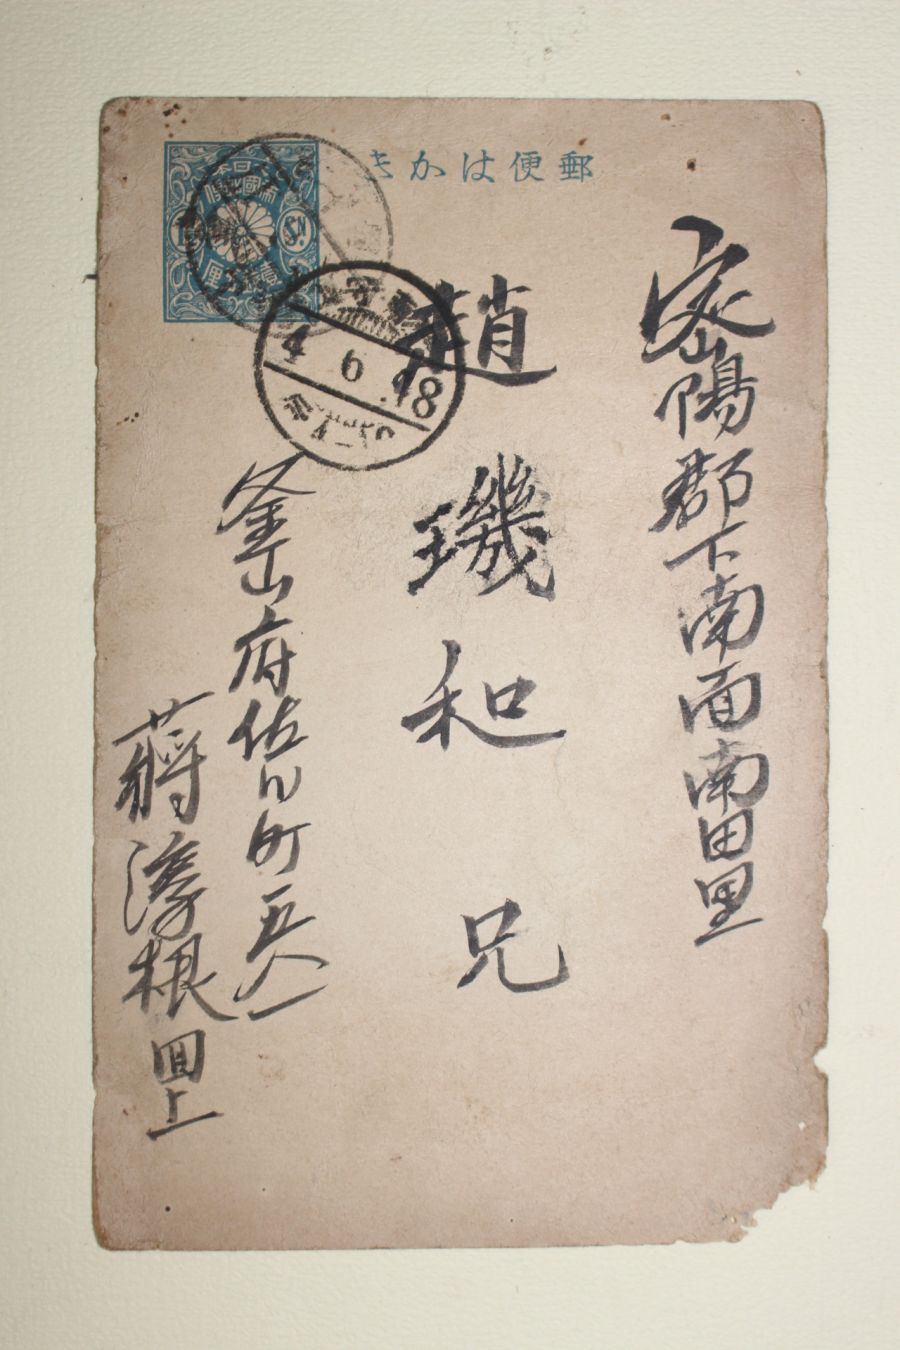 郵便はかき
密陽郡下南面南田里
趙璣和兄
釜山府佐川町五八一
蔣淳根 上
4 6 18
Sn